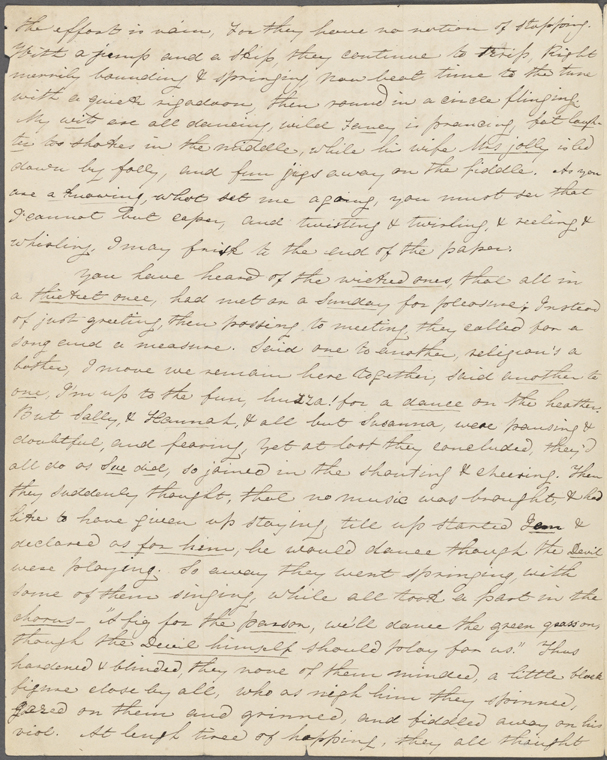 the effort is vain, For they have no notion of stopping.
With a jump and a skip, they continue to trip, Right
merrily bounding & springing, now beat time to the tune
with a quick rigadoon, then round in a circle flinging,
My wits are all dancing, wild Fancy is prancing, fat laugh-
ter too shakes in the middle, while his wife Mrs jolly is led
down by folly, and fun jigs away on the fiddle. As you
are a knowing, what set me agoing, you must see that
I cannot but caper, and twisting & twirling, & reeling &
whirling, I may frisk to the end of the paper.
You have heard of the wicked ones, that all in
a thicket once, had met on a Sunday for pleasure; Instead
of just greeting, then passing to meeting, they called for a
song and a measure. Said one to another, religion's a
bother, I move we remain here together, said another to
one, I'm up to the fun, huzza! for a dance on the heather.
But Sally, & Hannah, & all but Susanna, were pausing &
doubtful, and fearing, yet at last they concluded, they'd
all do as Sue did, so joined in the shouting & cheering. Then
they suddenly thought, that no music was brought, & had
like to have given up staying, till up started Jem &
declared as for him, he would dance though the Devil
were playing. So away they went springing, with
some of them singing, while all took a part in the
chorus— "a fig for the parson, we'll dance the green grass on,
though the Devil himself should play for us." Thus
hardened & blinded, they none of them minded, a little black
figure close by all, who as nigh him they spinned,
gazed on them and grinned, and fiddled away on his
viol. At length tired of hopping, they all thought